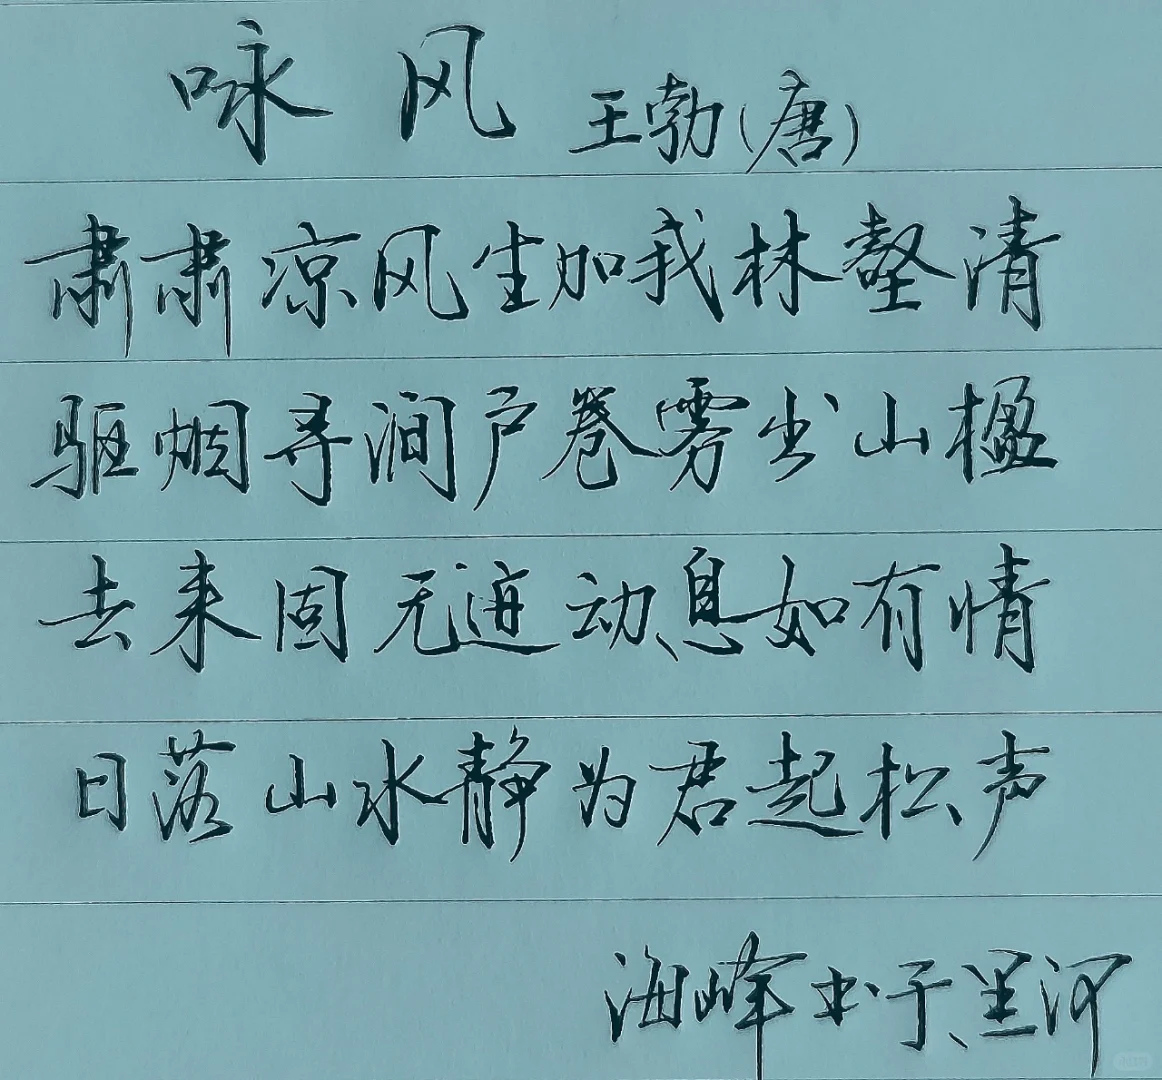 咏风 王勃(唐)
肃肃凉风生加我林壑清
驱烟寻涧户卷雾出山楹
去来固无迹动息如有情
日落山水静为君起松声
海峰书于黑河